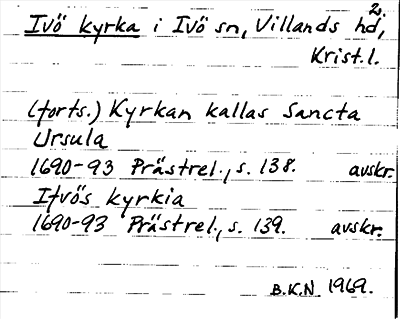 2.
Ivö kyrka i Ivö sn, Villands hd,
Krist. l.
(forts.) Kyrkan kallas Sancta
Ursula
1690-93 Prästrel., s. 138. avskr.
Ifvös kyrkia
1690-93 Prästrel., s. 139. avskr.
B.K.N. 1969.